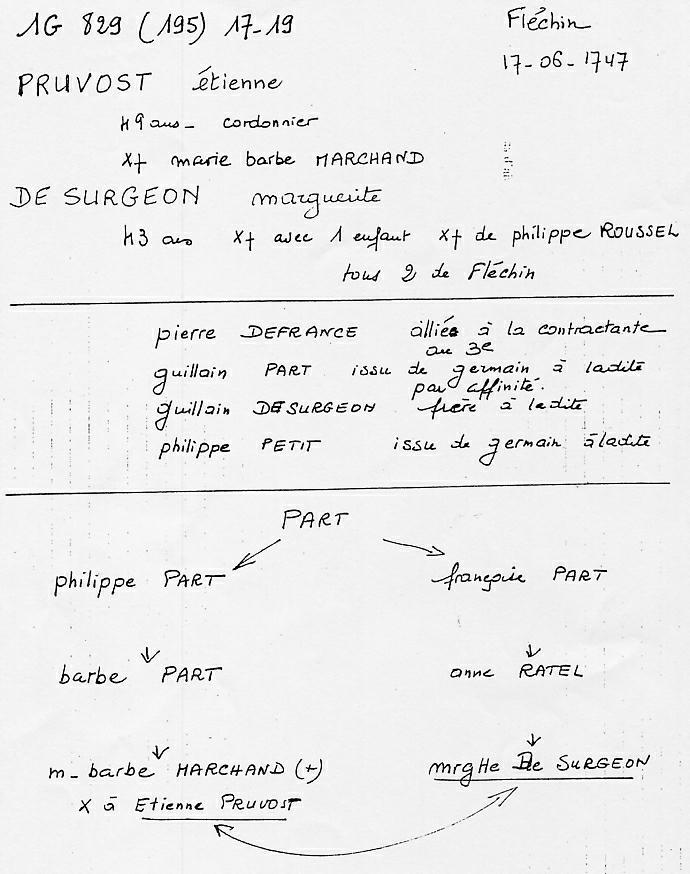 1G 829 (195) 17-19
Fléchin
17-06-1747
PRUVOST étienne
49 ans - cordonnier
x+ marie barbe MARCHAND
DE SURGEON marguerite
43 ans x+ avec 1 enfant x+ de philippe ROUSSEL
tous 2 de Fléchin
pierre DEFRANCE alliés à la contractante
au 3e
guillain PART issu de germain à ladite
par affinité.
guillain DESURGEON frère à ladite
philippe PETIT issu de germain à ladite
PART
philippe PART françoise PART
barbe PART anne RATEL
m-barbe MARCHAND (+) mrgHe De SURGEON
X à Etienne PRUVOST